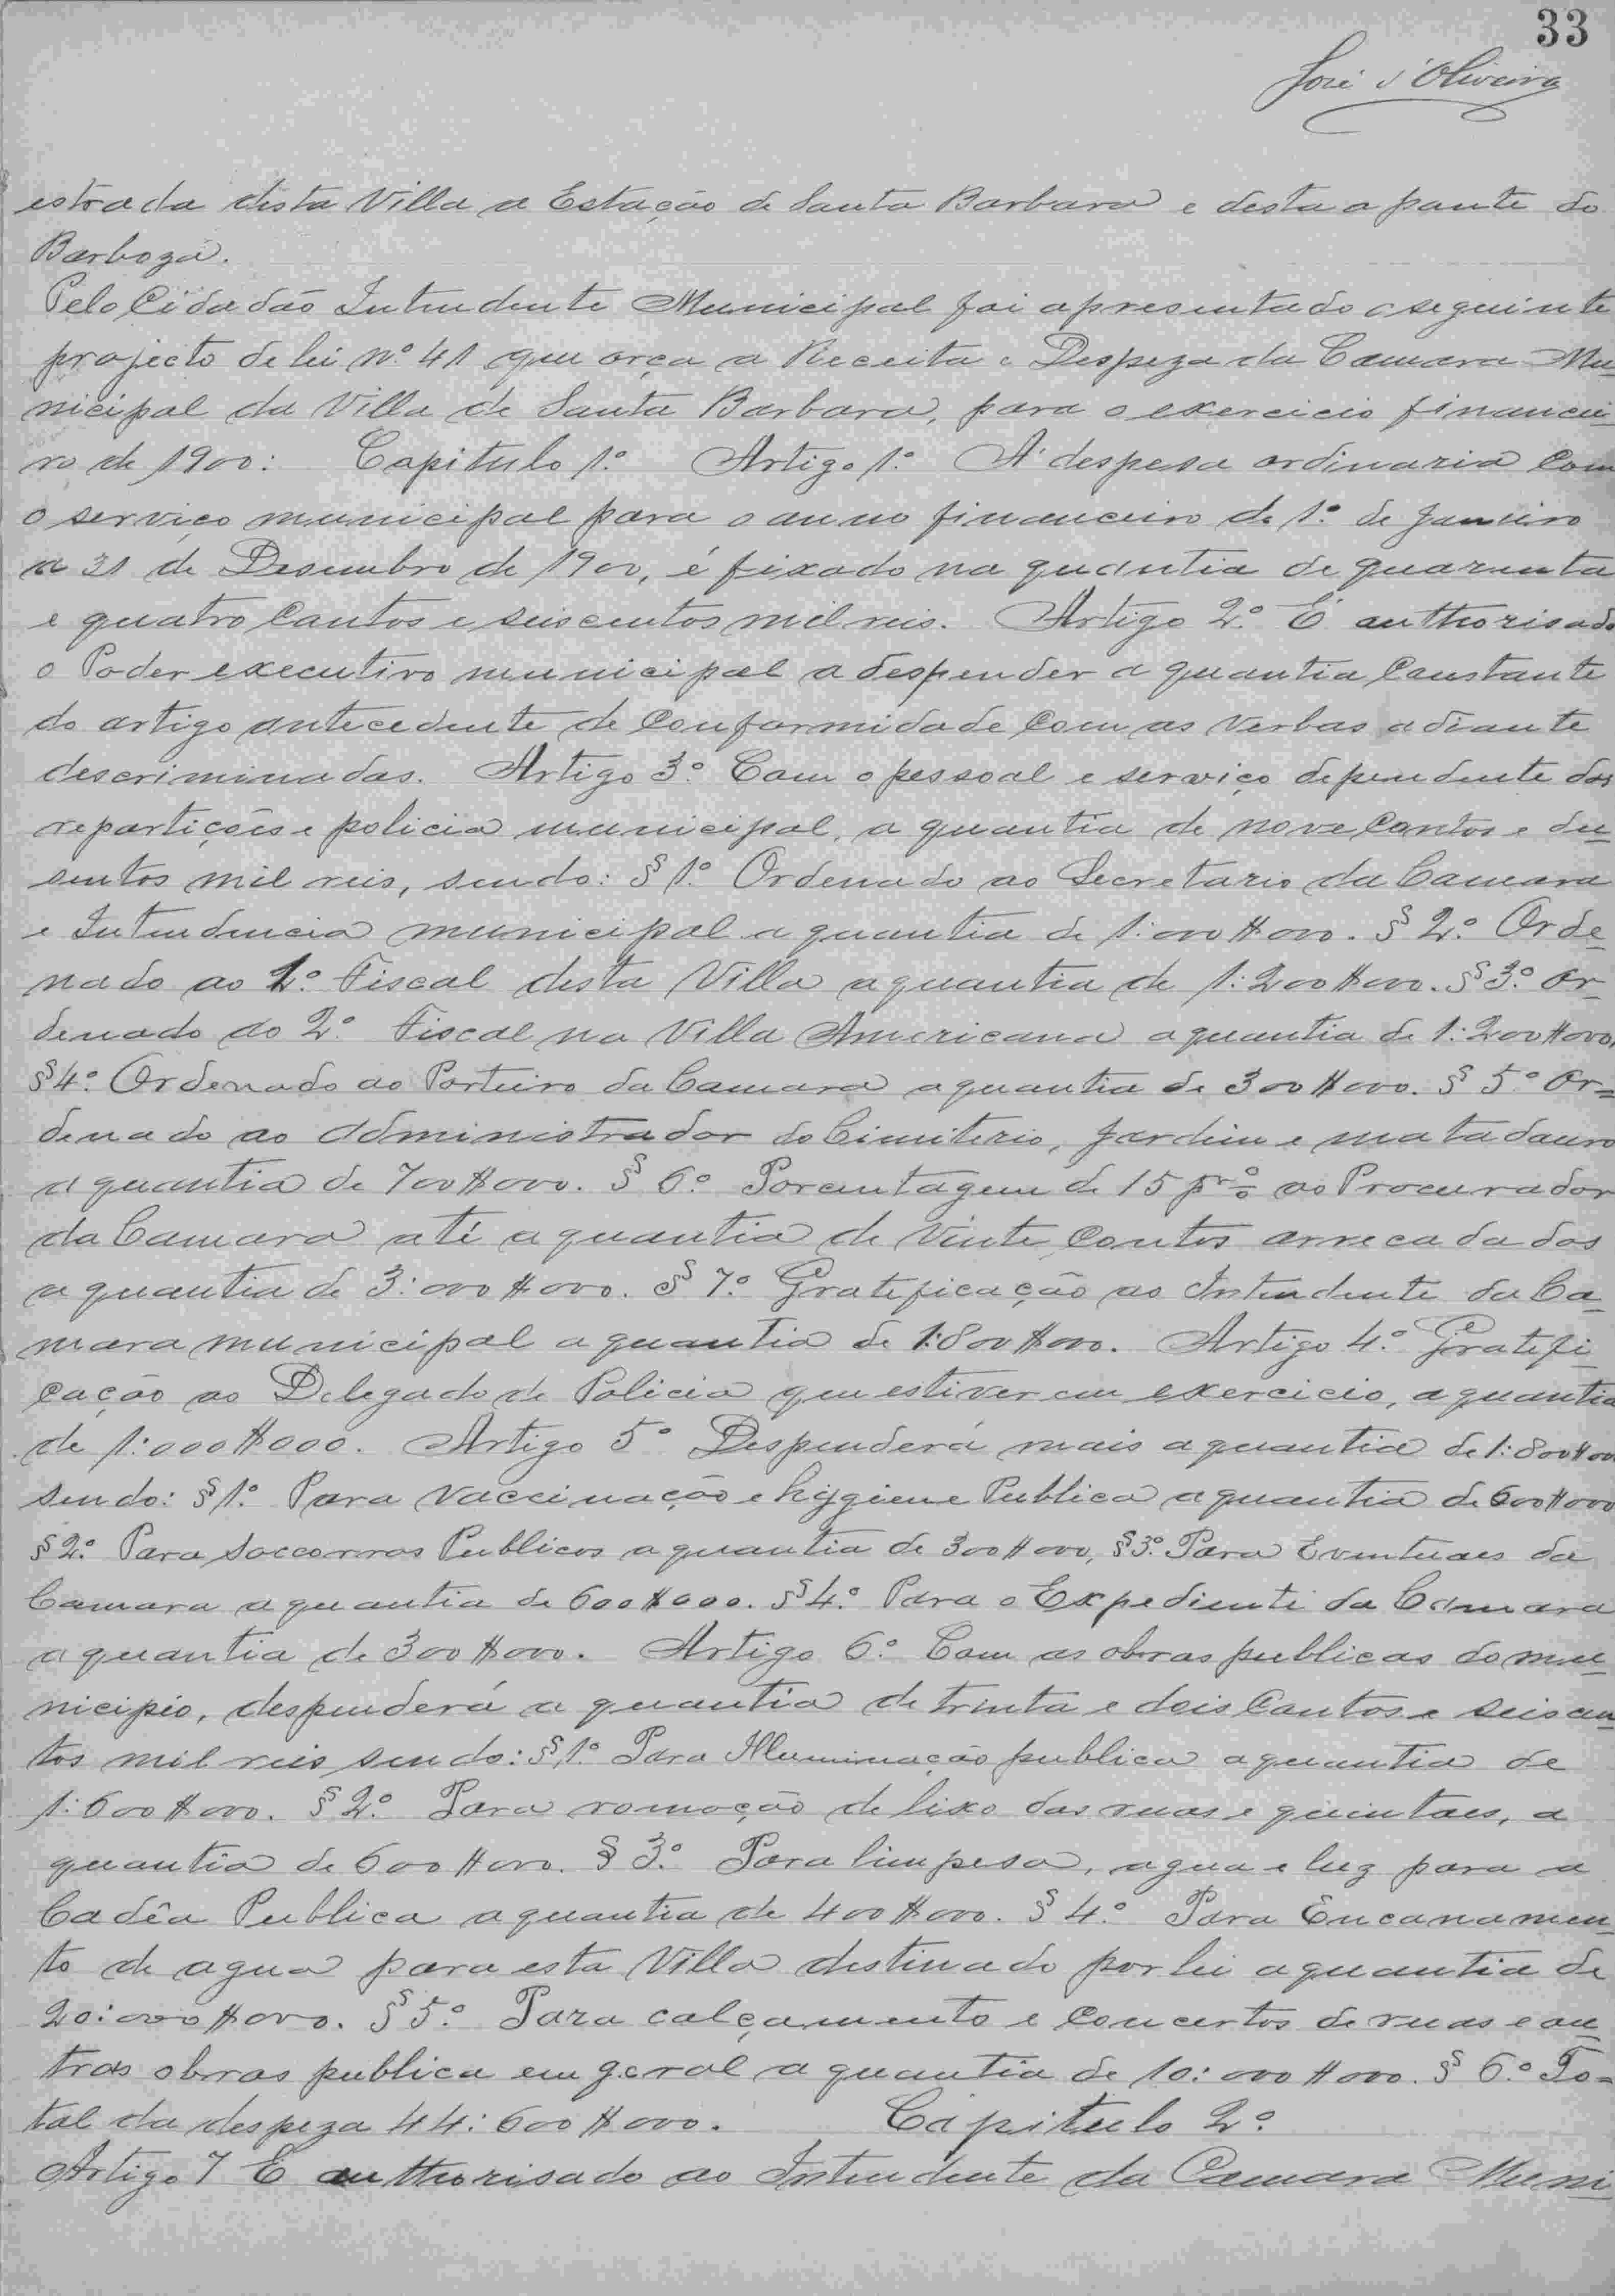 33
José d'Oliveira
estrada desta Villa a Estação de Santa Barbara e desta a pante do
Barboza.
Pelo Cidadão Intendente Municipal foi apresentado o seguinte
projecto de lei Nº 41 que orça a Receita e Despeza da Camara Mu-
nicipal da Villa de Santa Barbara, para o exercicio financei-
ro de 1900: Capitulo 1º Artigo 1º A' despesa ordinaria com
o serviço municipal para o anno financeiro de 1º de Janeiro
a 31 de Desembro de 1900, é fixado na quantia de quarenta
e quatro Contos e seiscentos mil reis. Artigo 2º É authorisado
o Poder executivo municipal a despender a quantia Constante
do artigo antecedente de Conformidade Com as Verbas adiante
descriminadas. Artigo 3º Com o pessoal e serviço dependente das
repartições e policia municipal, a quantia de nove Contos e du-
sentos mil reis, sendo: § 1º Ordenado ao Secretario da Camara
e Intendencia municipal a quantia de 1:000$000. § 2º Orde-
nado ao 1º Fiscal desta Villa a quantia de 1:200$000. § 3º Or-
denado ao 2º Fiscal na Villa Americana a quantia de 1:200$000.
§ 4º Ordenado ao Porteiro da Camara a quantia de 300$000. § 5º Or=
denado ao Administrador do Cimiterio, Jardim e matadouro
a quantia de 700$000. § 6º Porcentagem de 15 pr% ao Procurador
da Camara até a quantia de Vinte Contos arrecadados
a quantia de 3:000$000. § 7º Gratificação ao Intendente da Ca-
mara municipal a quantia de 1:800$000. Artigo 4º Gratifi-
cação ao Delegado de Policia que estiver em exercicio, a quantia
de 1:000$000. Artigo 5º Despenderá mais a quantia de 1:800$00
sendo: § 1º Para Vaccinação e hygiene Publica a quantia de 600$000
§ 2º Para Soccorros Publicos a quantia de 300$000, § 3º Para Eventuaes da
Camara a quantia de 600$000. § 4º Para o Expediente da Camara
a quantia de 300$000. Artigo 6º Com as obras publicas do mu-
nicipio, despenderá a quantia de trinta e dois Contos e seiscen-
tos mil reis sendo: § 1º Para Illuminação publica a quantia de
1:600$000. § 2º Para romoção de lixo das ruas e quintaes, a
quantia de 600$000. § 3º Para limpesa, agua e luz para a
Cadêa Publica a quantia de 400$000. § 4º Para Encanamen-
to de agua para esta Villa destinado por lei a quantia de
20:000$000. § 5º Para calçamento e Concertos de ruas e ou-
tras obras publica em geral a quantia de 10:000$000. § 6º To=
tal da despeza 44:600$000. Capitulo 2º
Artigo 7 É authorisado ao Intendente da Camara Muni-